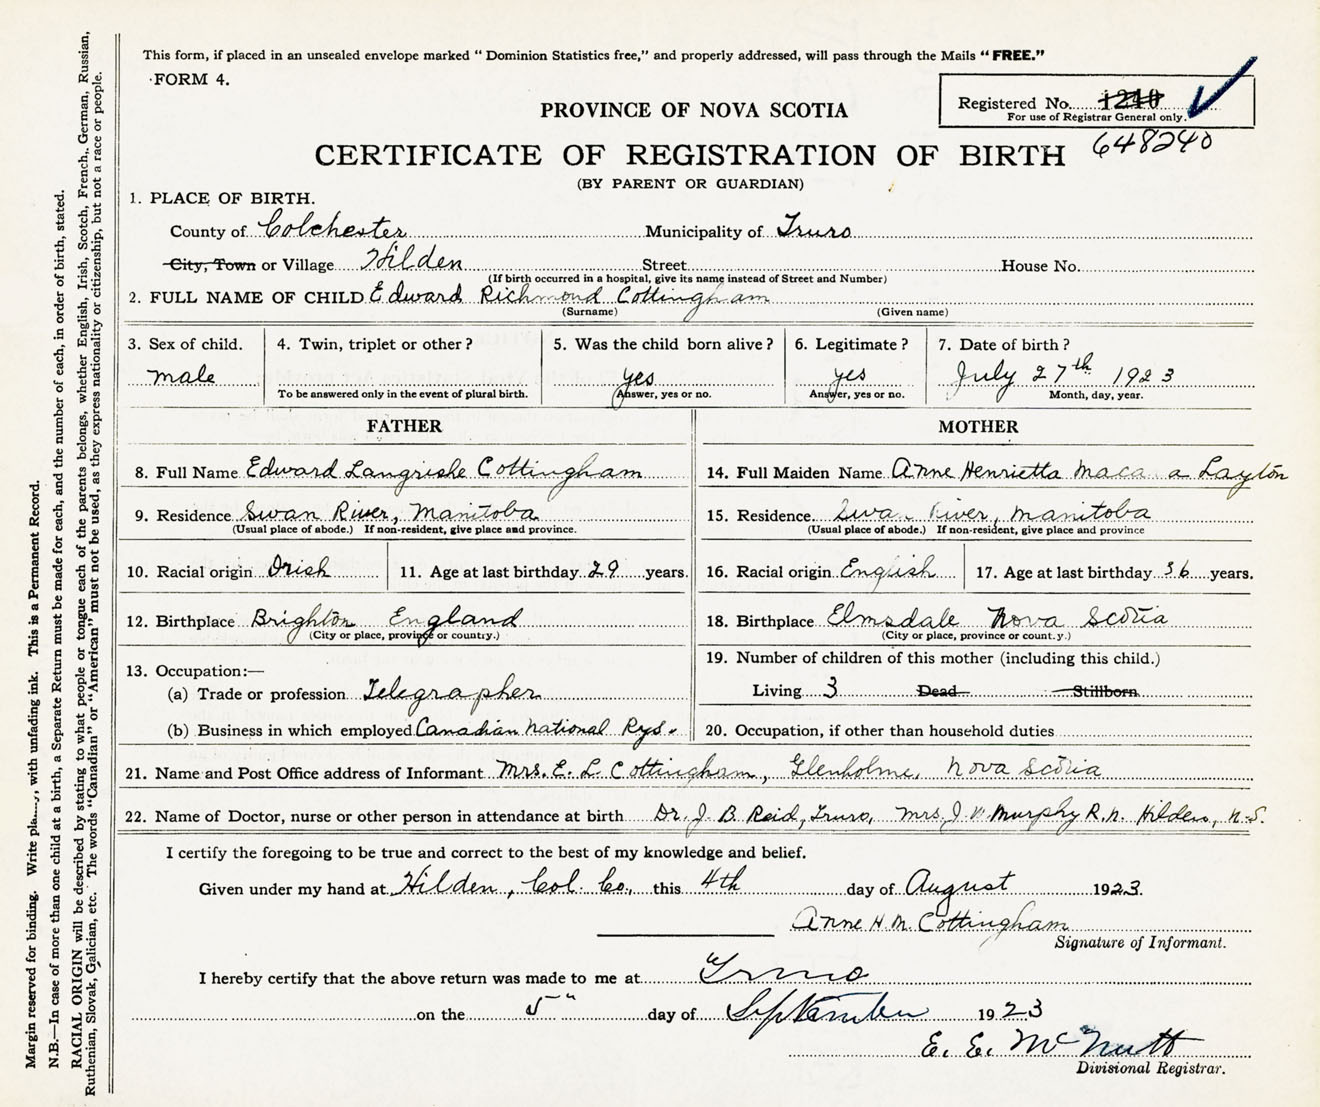 This form, if placed in an unsealed envelope marked " Dominion Statistics free," and properly addressed, will pass through the Mails "FREE."
FORM 4.
Registered No. 1240
For use of Registrar General only.
648240
PROVINCE OF NOVA SCOTIA
CERTIFICATE OF REGISTRATION OF BIRTH
(BY PARENT OR GUARDIAN)
1. PLACE OF BIRTH.
County of Colchester Municipality of Truro
City, Town or Village Hilden Street House No.
(If birth occurred in a hospital, give its name instead of Street and Number)
2. FULL NAME OF CHILD Edward Richmond Cottingham
(Surname) (Given name)
3. Sex of child. 4. Twin, triplet or other? 5. Was the child born alive? 6. Legitimate? 7. Date of birth?
male yes yes July 27th 1923
To be answered only in the event of plural birth. Answer, yes or no. Answer, yes or no. Month, day, year.
FATHER MOTHER
8. Full Name Edward Langrishe Cottingham 14. Full Maiden Name Anne Henrietta Layton
9. Residence Swan River, Manitoba 15. Residence Swan River, Manitoba
(Usual place of abode.) If non-resident, give place and province. (Usual place of abode.) If non-resident, give place and province
10. Racial origin Irish 11. Age at last birthday 29 years. 16. Racial origin English 17. Age at last birthday 36 years.
12. Birthplace Brighton England 18. Birthplace Elmsdale Nova Scotia
(City or place, province or country.) (City or place, province or count.y.)
13. Occupation:— 19. Number of children of this mother (including this child.)
(a) Trade or profession Telegrapher Living 3 Dead Stillborn
(b) Business in which employed Canadian National Rys. 20. Occupation, if other than household duties
21. Name and Post Office address of Informant Mrs. E. L. Cottingham, Glenholme, Nova Scotia
22. Name of Doctor, nurse or other person in attendance at birth Dr. J. B. Reid, Truro, Mrs. J. Murphy R.N. Hilden, N.S.
I certify the foregoing to be true and correct to the best of my knowledge and belief.
Given under my hand at Hilden, Col. Co., this 4th day of August 1923.
Anne H. M. Cottingham
Signature of Informant.
I hereby certify that the above return was made to me at Truro
on the 5" day of September 1923
E. E. McNutt
Divisional Registrar.
Margin reserved for binding. Write pla....., with unfading ink. This is a Permanent Record.
N.B.—In case of more than one child at a birth, a Separate Return must be made for each, and the number of each, in order of birth, stated.
RACIAL ORIGIN will be described by stating to what people or tongue each of the parents belongs, whether English, Irish, Scotch, French, German, Russian,
Ruthenian, Slovak, Galician, etc. The words "Canadian" or "American" must not be used, as they express nationality or citizenship, but not a race or people.